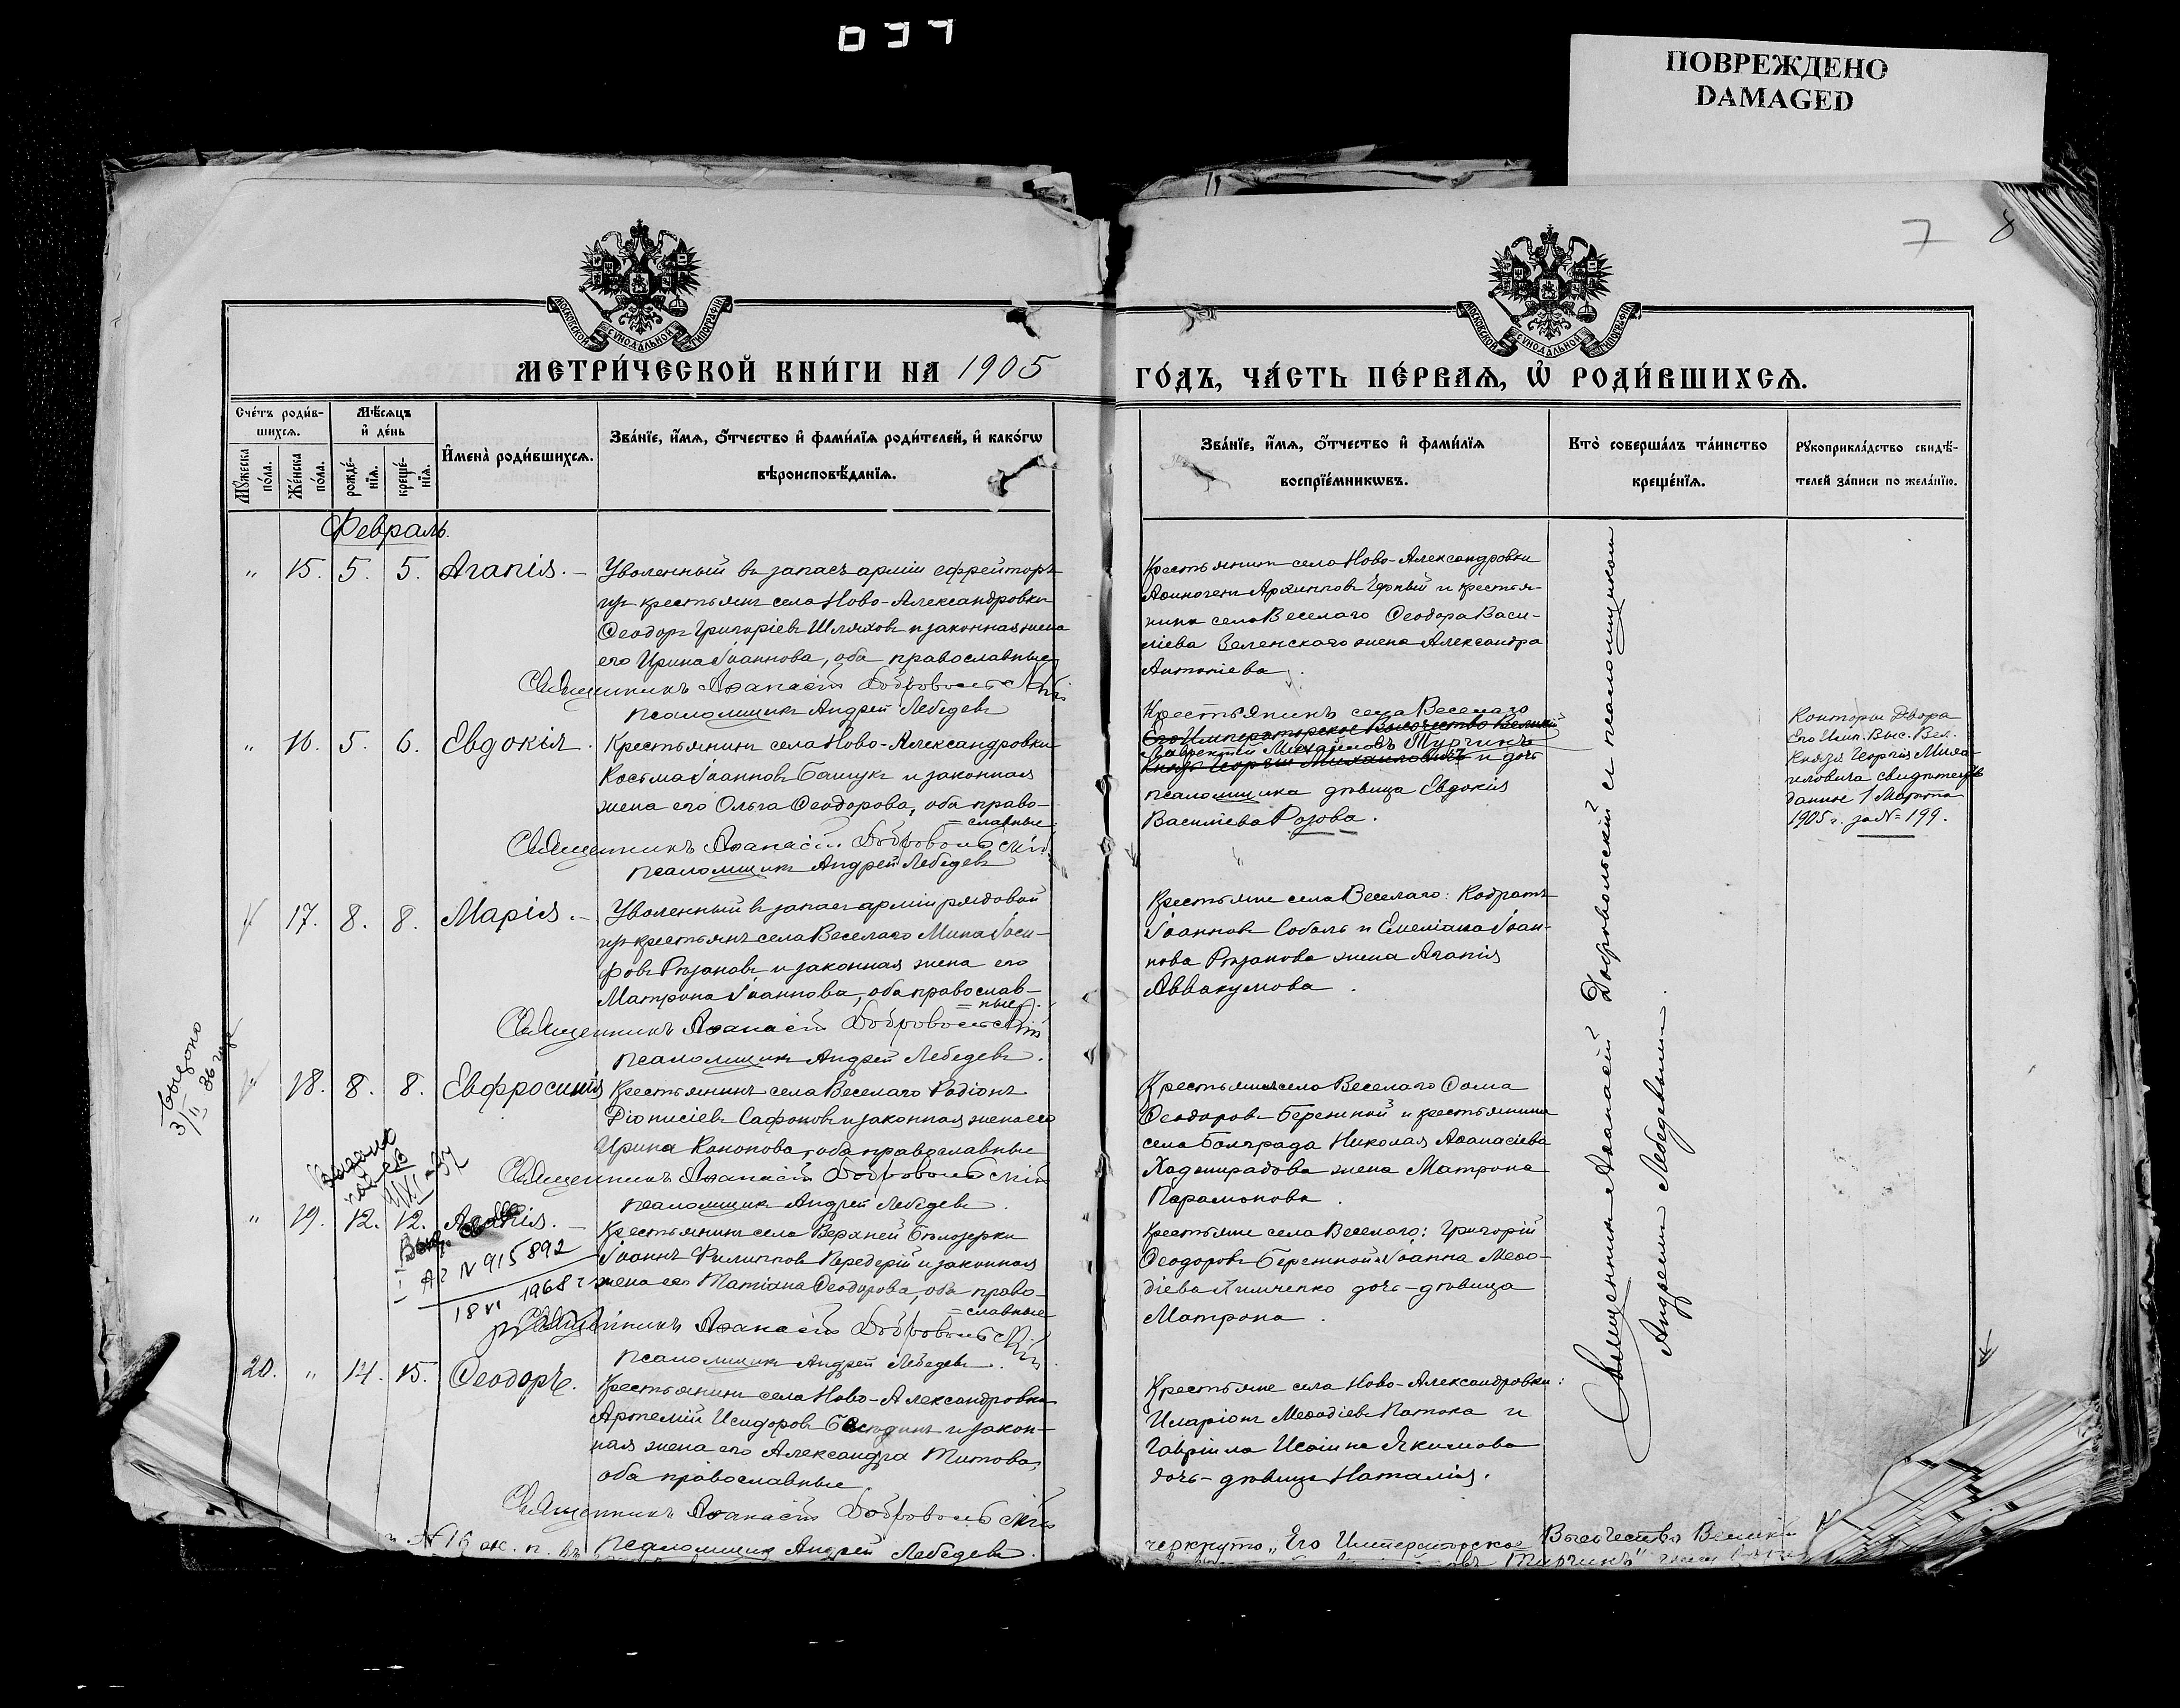 ПОВРЕЖДЕНО
DAMAGED
7 8
МОСКОВСКОЙ СѴНОДАЛЬНОЙ ТИПОГРАФІИ
МОСКОВСКОЙ СѴНОДАЛЬНОЙ ТИПОГРАФІИ
МЕТРИ́ЧЕСКОЙ КНИ́ГИ НА 1905
ГО́ДЪ, ЧА́СТЬ ПЕ́РВАѦ, Ѡ҆ РОДИ́ВШИХСѦ.
Сче́тъ роди́в-
шихсѧ.
Мꙋ́жеска
по́ла.
Же́нска
по́ла.
Мѣ́сѧцъ
и҆ де́нь
рожде́-
нїѧ.
креще́-
нїѧ.
И҆мена̀ роди́вшихсѧ.
Зва́нїе, и҆́мѧ, ѻ҆́тчество и҆ фами́лїѧ роди́телей, и҆ како́гѡ
вѣроисповѣ́данїѧ.
Зва́нїе, и҆́мѧ, ѻ҆́тчество и҆ фами́лїѧ
воспрїе́мникѡвъ.
Кто̀ соверша́лъ та́инство
креще́нїѧ.
Рꙋкоприкла́дство свидѣ́-
телей за́писи по жела́нїю.
Февраль.
„ 15. 5. 5. Агапія. –
Уволенный въ запасъ арміи ефрейторъ
изъ крестьянъ села Ново-Александровки
Ѳеодоръ Григоріевъ Шляховъ и законная жена
его Ирина Іоаннова, оба православные
Священникъ Аѳанасій Добровольскій
псаломщикъ Андрей Лебедевъ
Крестьянинъ села Ново-Александровки
Аѳиногенъ Архипповъ Черный и крестья-
нина села Веселаго Ѳеодора Васи-
ліева Зеленскаго жена Александра
Антоніева.
„ 16. 5. 6. Евдокія.
Крестьянинъ села Ново-Александровки
Косьма Іоанновъ Башукъ и законная
жена его Ольга Ѳеодорова, оба право-
=славные
Священникъ Аѳанасій Добровольскій
псаломщикъ Андрей Лебедевъ
Крестьянинъ села Веселаго
Его Императорское Высочество Великій
Лаврентій Михайловъ Турчинъ
Князь Георгій Михаиловичъ и дочь
псаломщика дѣвица Евдокія
Василіева Розова.
Конторы Двора
Его Имп. Выс. Вел.
Князя Георгія Миха-
иловича свидѣтельств
данное 1 Марта
1905 г. за № 199.
17. 8. 8. Марія. –
Уволенный въ запасъ арміи рядовой
изъ крестьянъ села Веселаго Мина Іоси-
фовъ Рязановъ и законная жена его
Матрона Іоаннова, оба православ-
=ные.
Священникъ Аѳанасій Добровольскій
псаломщикъ Андрей Лебедевъ.
Крестьяне села Веселаго: Кодратъ
Іоанновъ Соболь и Емеліана Іоан-
нова Рязанова жена Агапія
Аввакумова.
18. 8. 8. Евфросинія
Крестьянинъ села Веселаго Родіонъ
Діонисіевъ Сафоновъ и законная жена его
Ирина Кононова, оба православные
Священникъ Аѳанасій Добровольскій
псаломщикъ Андрей Лебедевъ.
Крестьянинъ села Веселаго Ѳома
Ѳеодоровъ Бережной и крестьянина
села Болграда Николая Аѳанасіева
Хаджирадова жена Матрона
Парамонова.
Выдано
3/II 36 года
Выдано
„ 19. 12. 12. Агапія. –
№ 915892
18 VI 1968 г.
Крестьянинъ села Верхней Бѣлозерки
Іоаннъ Филипповъ Передерій и законная
жена его Татіана Ѳеодорова, оба право-
=славные
Священникъ Аѳанасій Добровольскій
псаломщикъ Андрей Лебедевъ.
Крестьяне села Веселаго: Григорій
Ѳеодоровъ Бережной и Іоанна Меѳо-
діева Тимченко дочь-дѣвица
Матрона.
20. „ 14. 15. Ѳеодоръ.
Крестьянинъ села Ново-Александровки
Артемій Исидоровъ и закон-
ная жена его Александра Титова,
оба православные
Священникъ Аѳанасій Добровольскій
псаломщикъ Андрей Лебедевъ.
Крестьяне села Ново-Александровки:
Иларіонъ Меѳодіевъ Патока и
Гавріила Исаіина Якимова
дочь-дѣвица Наталія.
Священникъ Аѳанасій Добровольскій съ псаломщикомъ
Андреемъ Лебедевымъ.
черкнуто „Его Императорское Высочество Великій
Турчинъ"